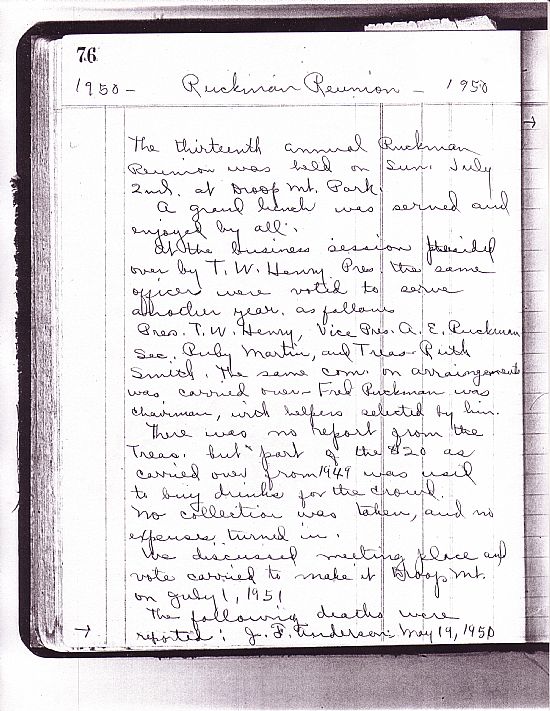 76
1950- Ruckman Reunion - 1950
The thirteenth annual Ruckman
Reunion was held on Sun. July
2nd. at Droop Mt. Park.
A grand lunch was served and
enjoyed by all.
At the business session presided
over by T. W. Henry Pres. the same
officer were voted to serve
another year. as follows
Pres. T. W. Henry, Vice Pres. A. E. Ruckman
Sec. Ruby Martin, and Treas. Ruth
Smith. The same com. on arraingements
was carried over - Fred Ruckman was
chairman, with helpers selected by him.
There was no report from the
Treas. but part of the $20 as
carried over from 1949 was used
to buy drinks for the crowd.
No collection was taken, and no
expenses turned in.
We discussed meeting place and
vote carried to make it Droop Mt.
on July 1, 1951
The following deaths were
reported: J. F. Anderson: May 19, 1950